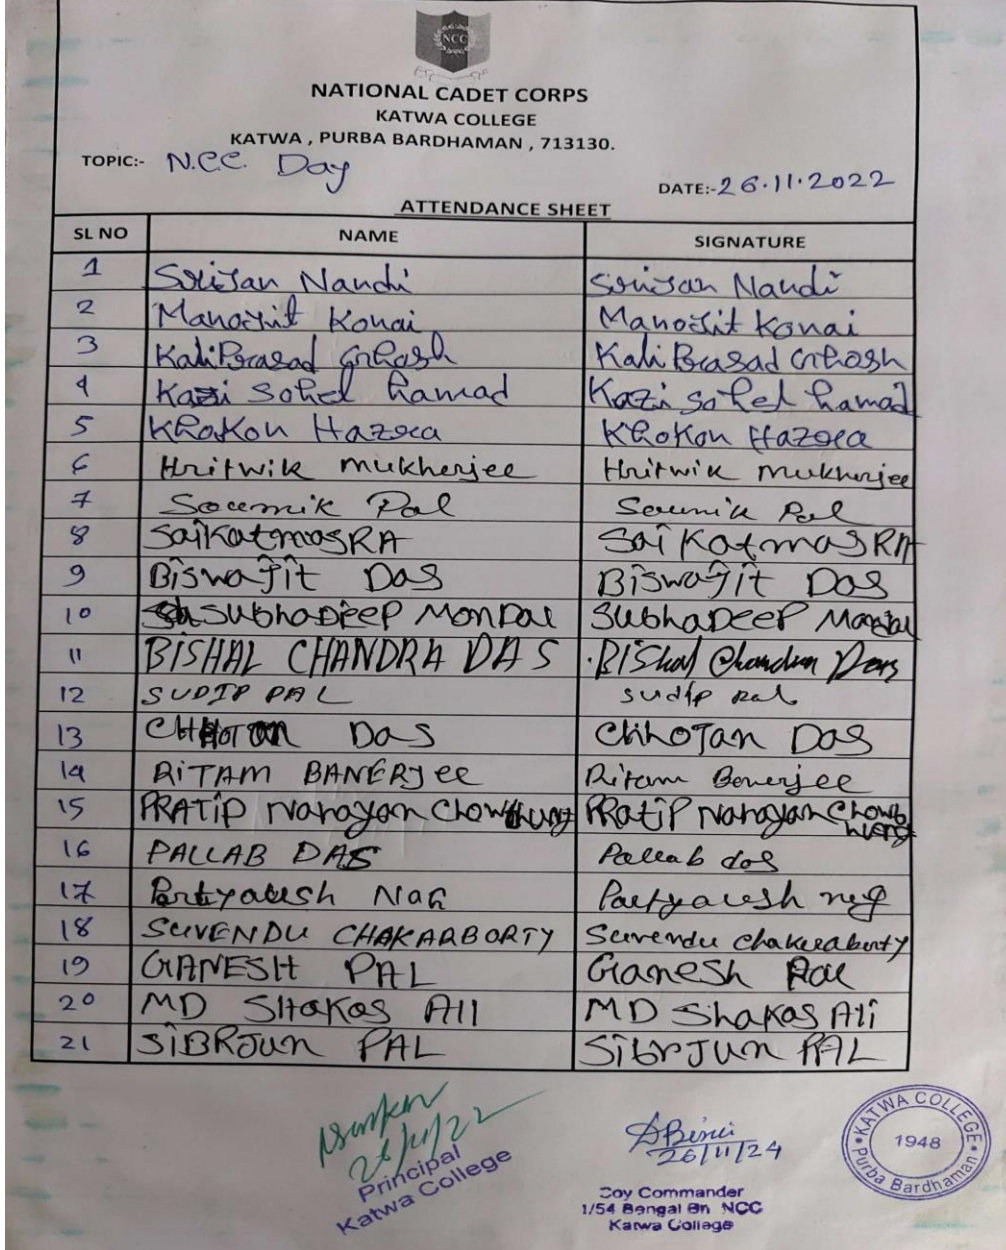 NCC
NATIONAL CADET CORPS
KATWA COLLEGE
KATWA , PURBA BARDHAMAN , 713130.
TOPIC:- N.C.C. Day
DATE:- 26.11.2022
ATTENDANCE SHEET
SL NO NAME SIGNATURE
1 Srijan Nandi Srijan Nandi
2 Manojit Konai Manojit Konai
3 Kali Prasad Ghosh Kali Prasad Ghosh
4 Kazi Sohel hamad Kazi Sohel hamad
5 KhoKon Hazra KhoKon Hazra
6 Hritwik mukherjee Hritwik mukherjee
7 Soumik Pal Soumik Pal
8 SaiKat
9 Biswajit DAS Biswajit DAS
10 SUbhaDEEP MonDal SUbhaDEEP
11 BISHAL CHANDRA DAS Bishal Chandra Das
12 SUDIP PAL sudip pal
13 DAS CHHOTAN DAS
14 RITAM BANERJEE Ritam Banerjee
15 PRATIP Narayan PRATIP Narayan
16 PALLAB DAS Pallab das
17 Nag
18 SUVENDU CHAKARBORTY Suvendu Chakraborty
19 GANESH PAL Ganesh Pal
20 MD SHakas Ali MD Shakas Ali
21 SiBRJun PAL SibrJun PAL
26/11/22
Principal
Katwa College
26/11/24
Coy Commander
1/54 Bengal Bn NCC
Katwa College
KATWA COLLEGE
1948
Purba Bardhaman